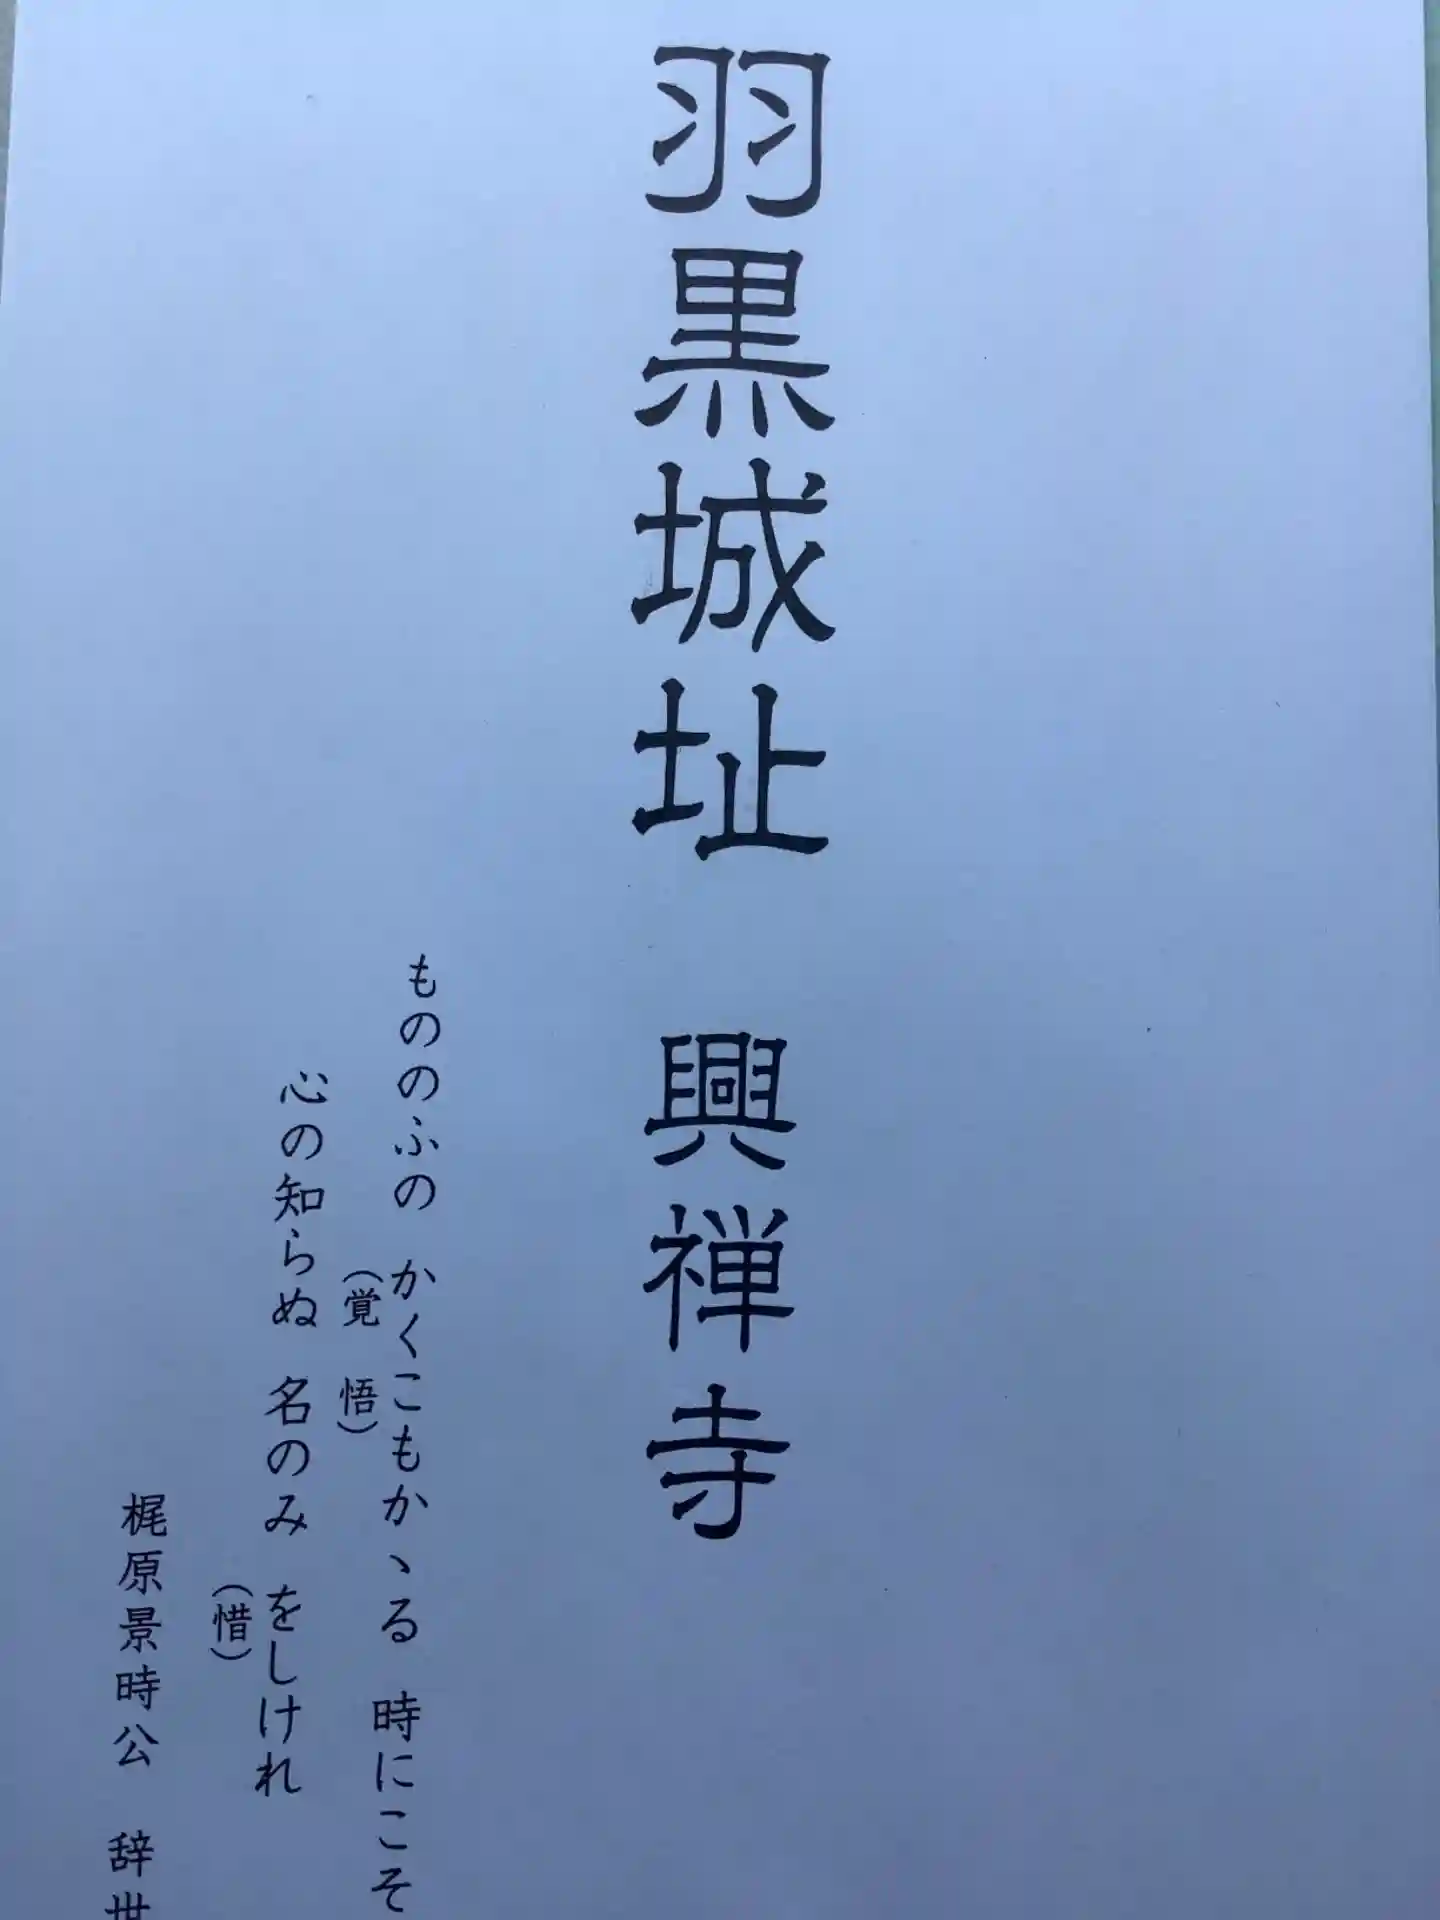 羽黒城址 興禅寺
もののふの かくこもかヽる 時にこそ
(覚悟)
心の知らぬ 名のみ をしけれ
(惜)
梶原景時公 辞世